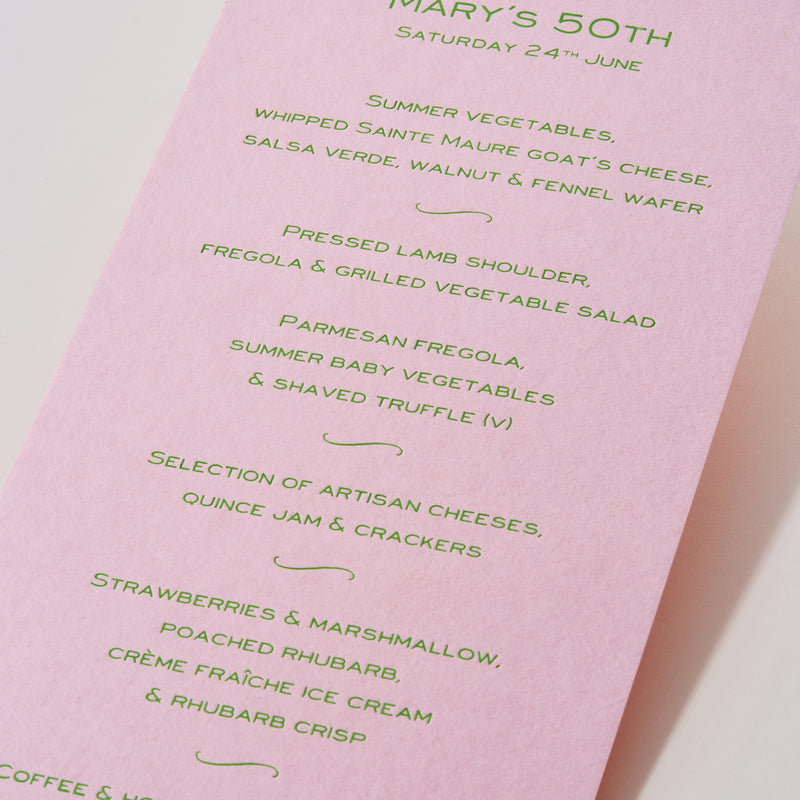 Mary's 50th
Saturday 24th June
Summer vegetables,
whipped Sainte Maure goat's cheese,
salsa verde, walnut & fennel wafer
Pressed lamb shoulder,
fregola & grilled vegetable salad
Parmesan fregola,
summer baby vegetables
& shaved truffle (v)
Selection of artisan cheeses,
quince jam & crackers
Strawberries & marshmallow,
poached rhubarb,
crème fraîche ice cream
& rhubarb crisp
Coffee &